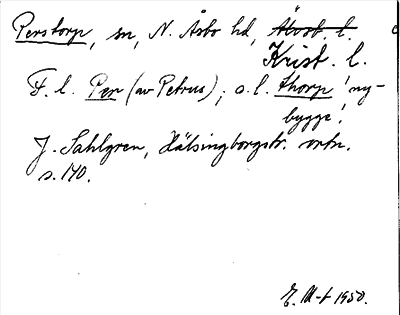 Perstorp, sn, N. Åsbo hd, Älvsb. l.
Krist. l.
F. l. Per (av Petrus); s. l. thorp 'ny-
bygge'.
J. Sahlgren, Hälsingborgstr. ortn.
s. 140.
E. M-t 1950.